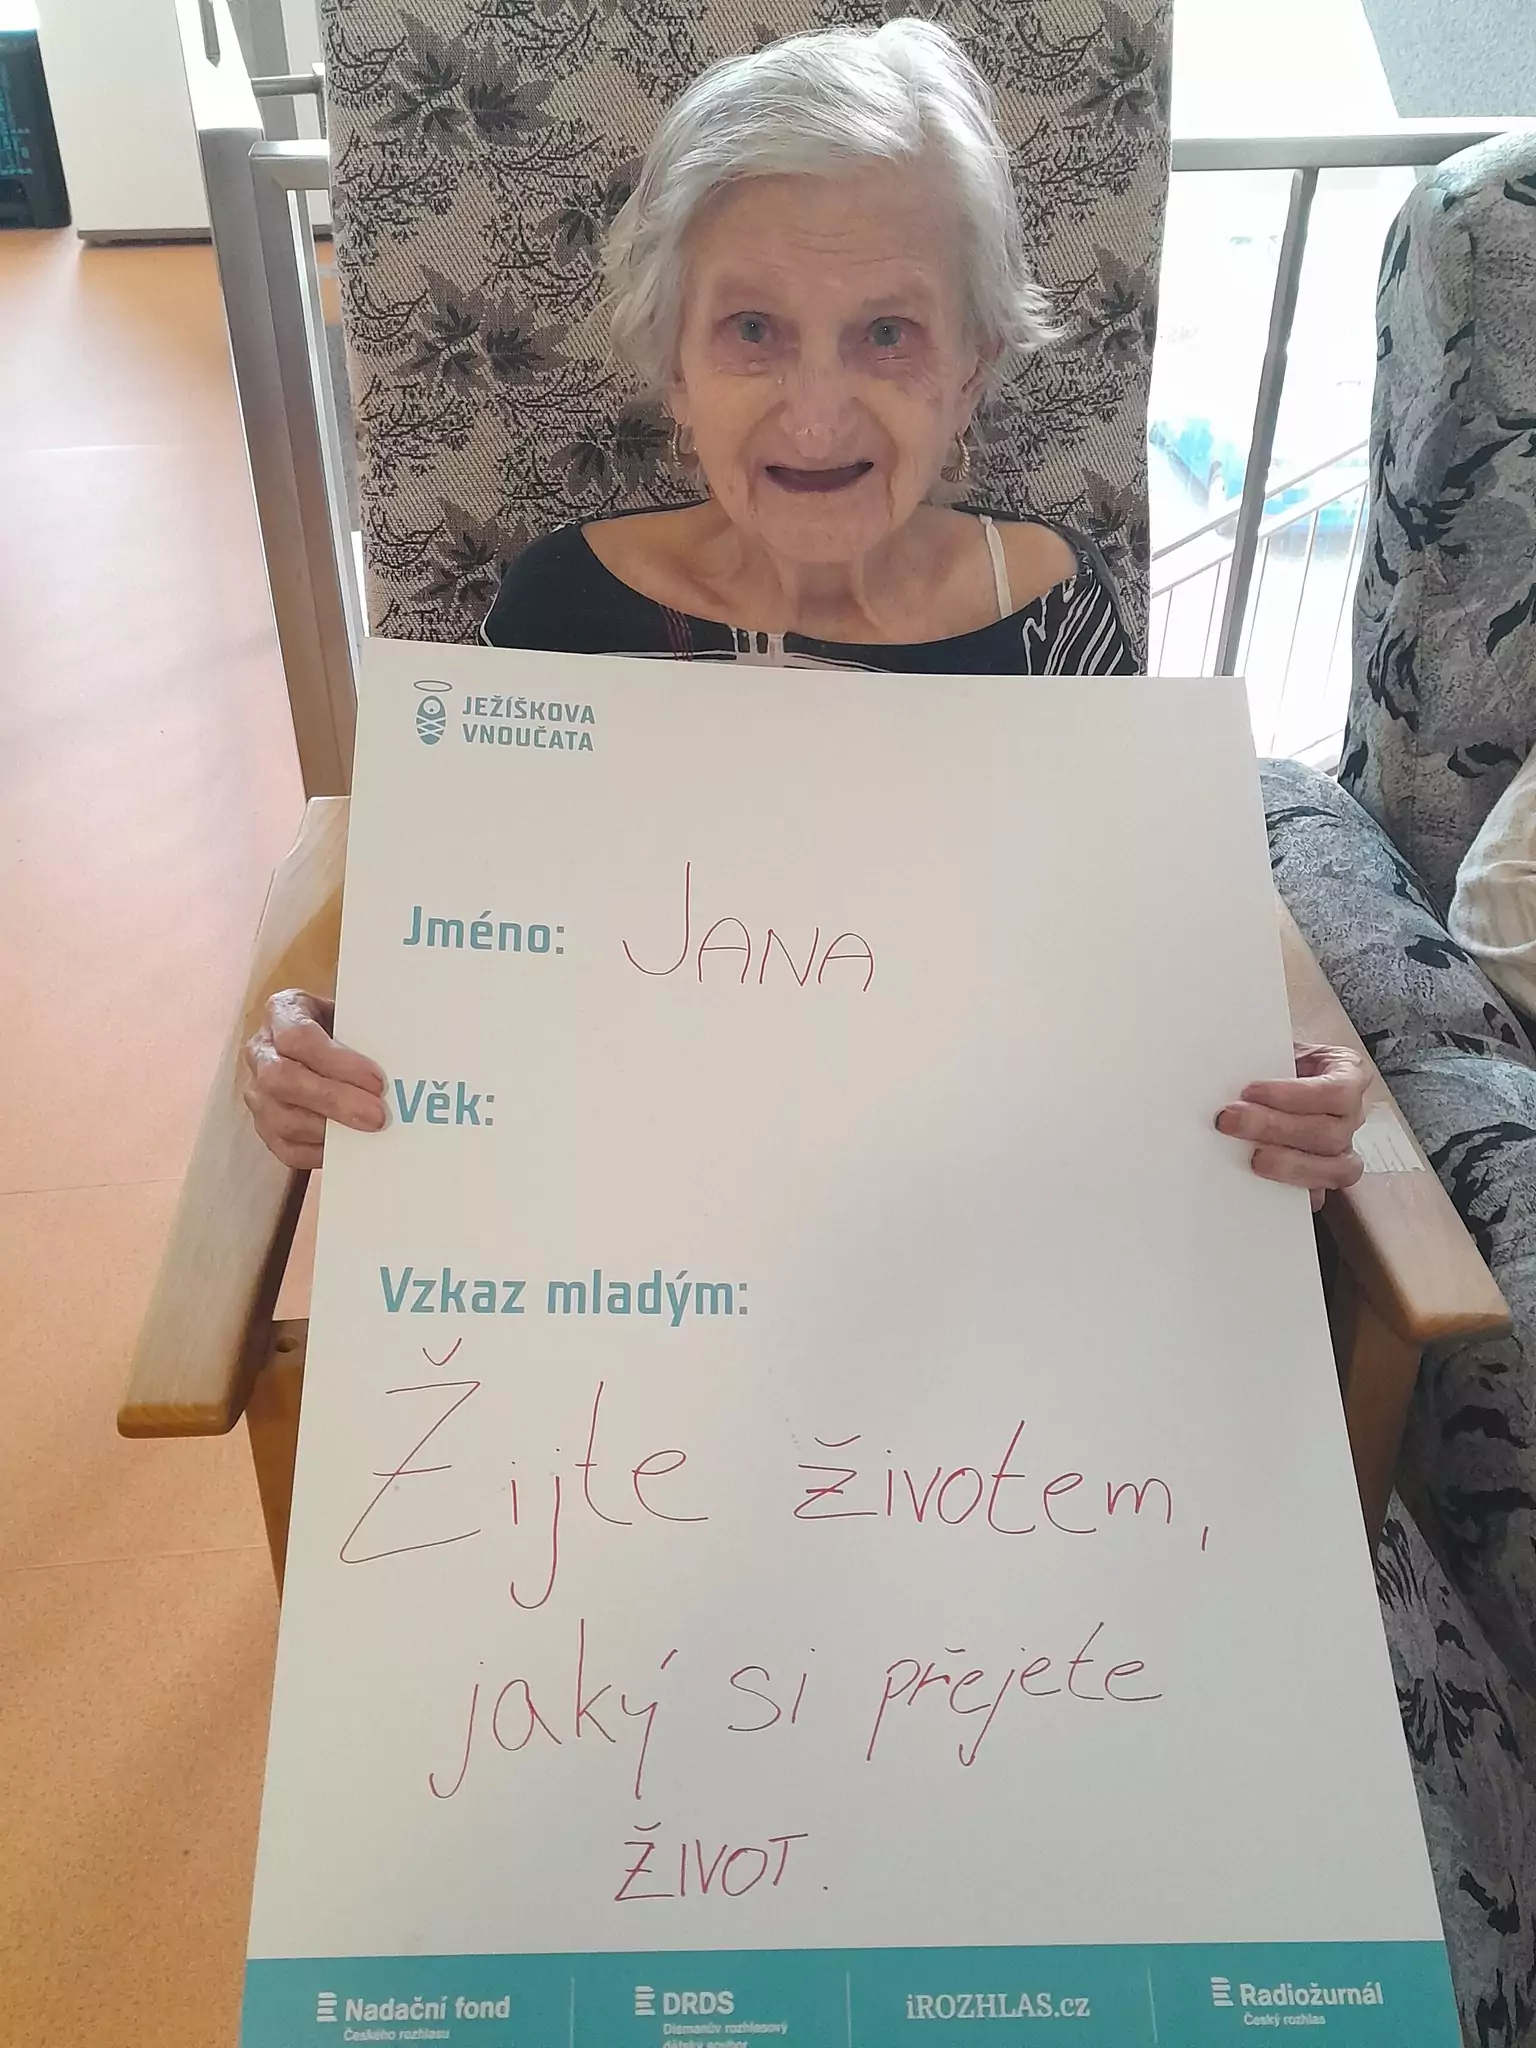 JEŽÍŠKOVA
VNOUČATA
Jméno: JANA
Věk:
Vzkaz mladým:
Žijte životem,
jaký si přejete
ŽIVOT.
Nadační fond
Českého rozhlasu
DRDS
Dismanův rozhlasový
dětský soubor
iROZHLAS.cz
Radiožurnál
Český rozhlas